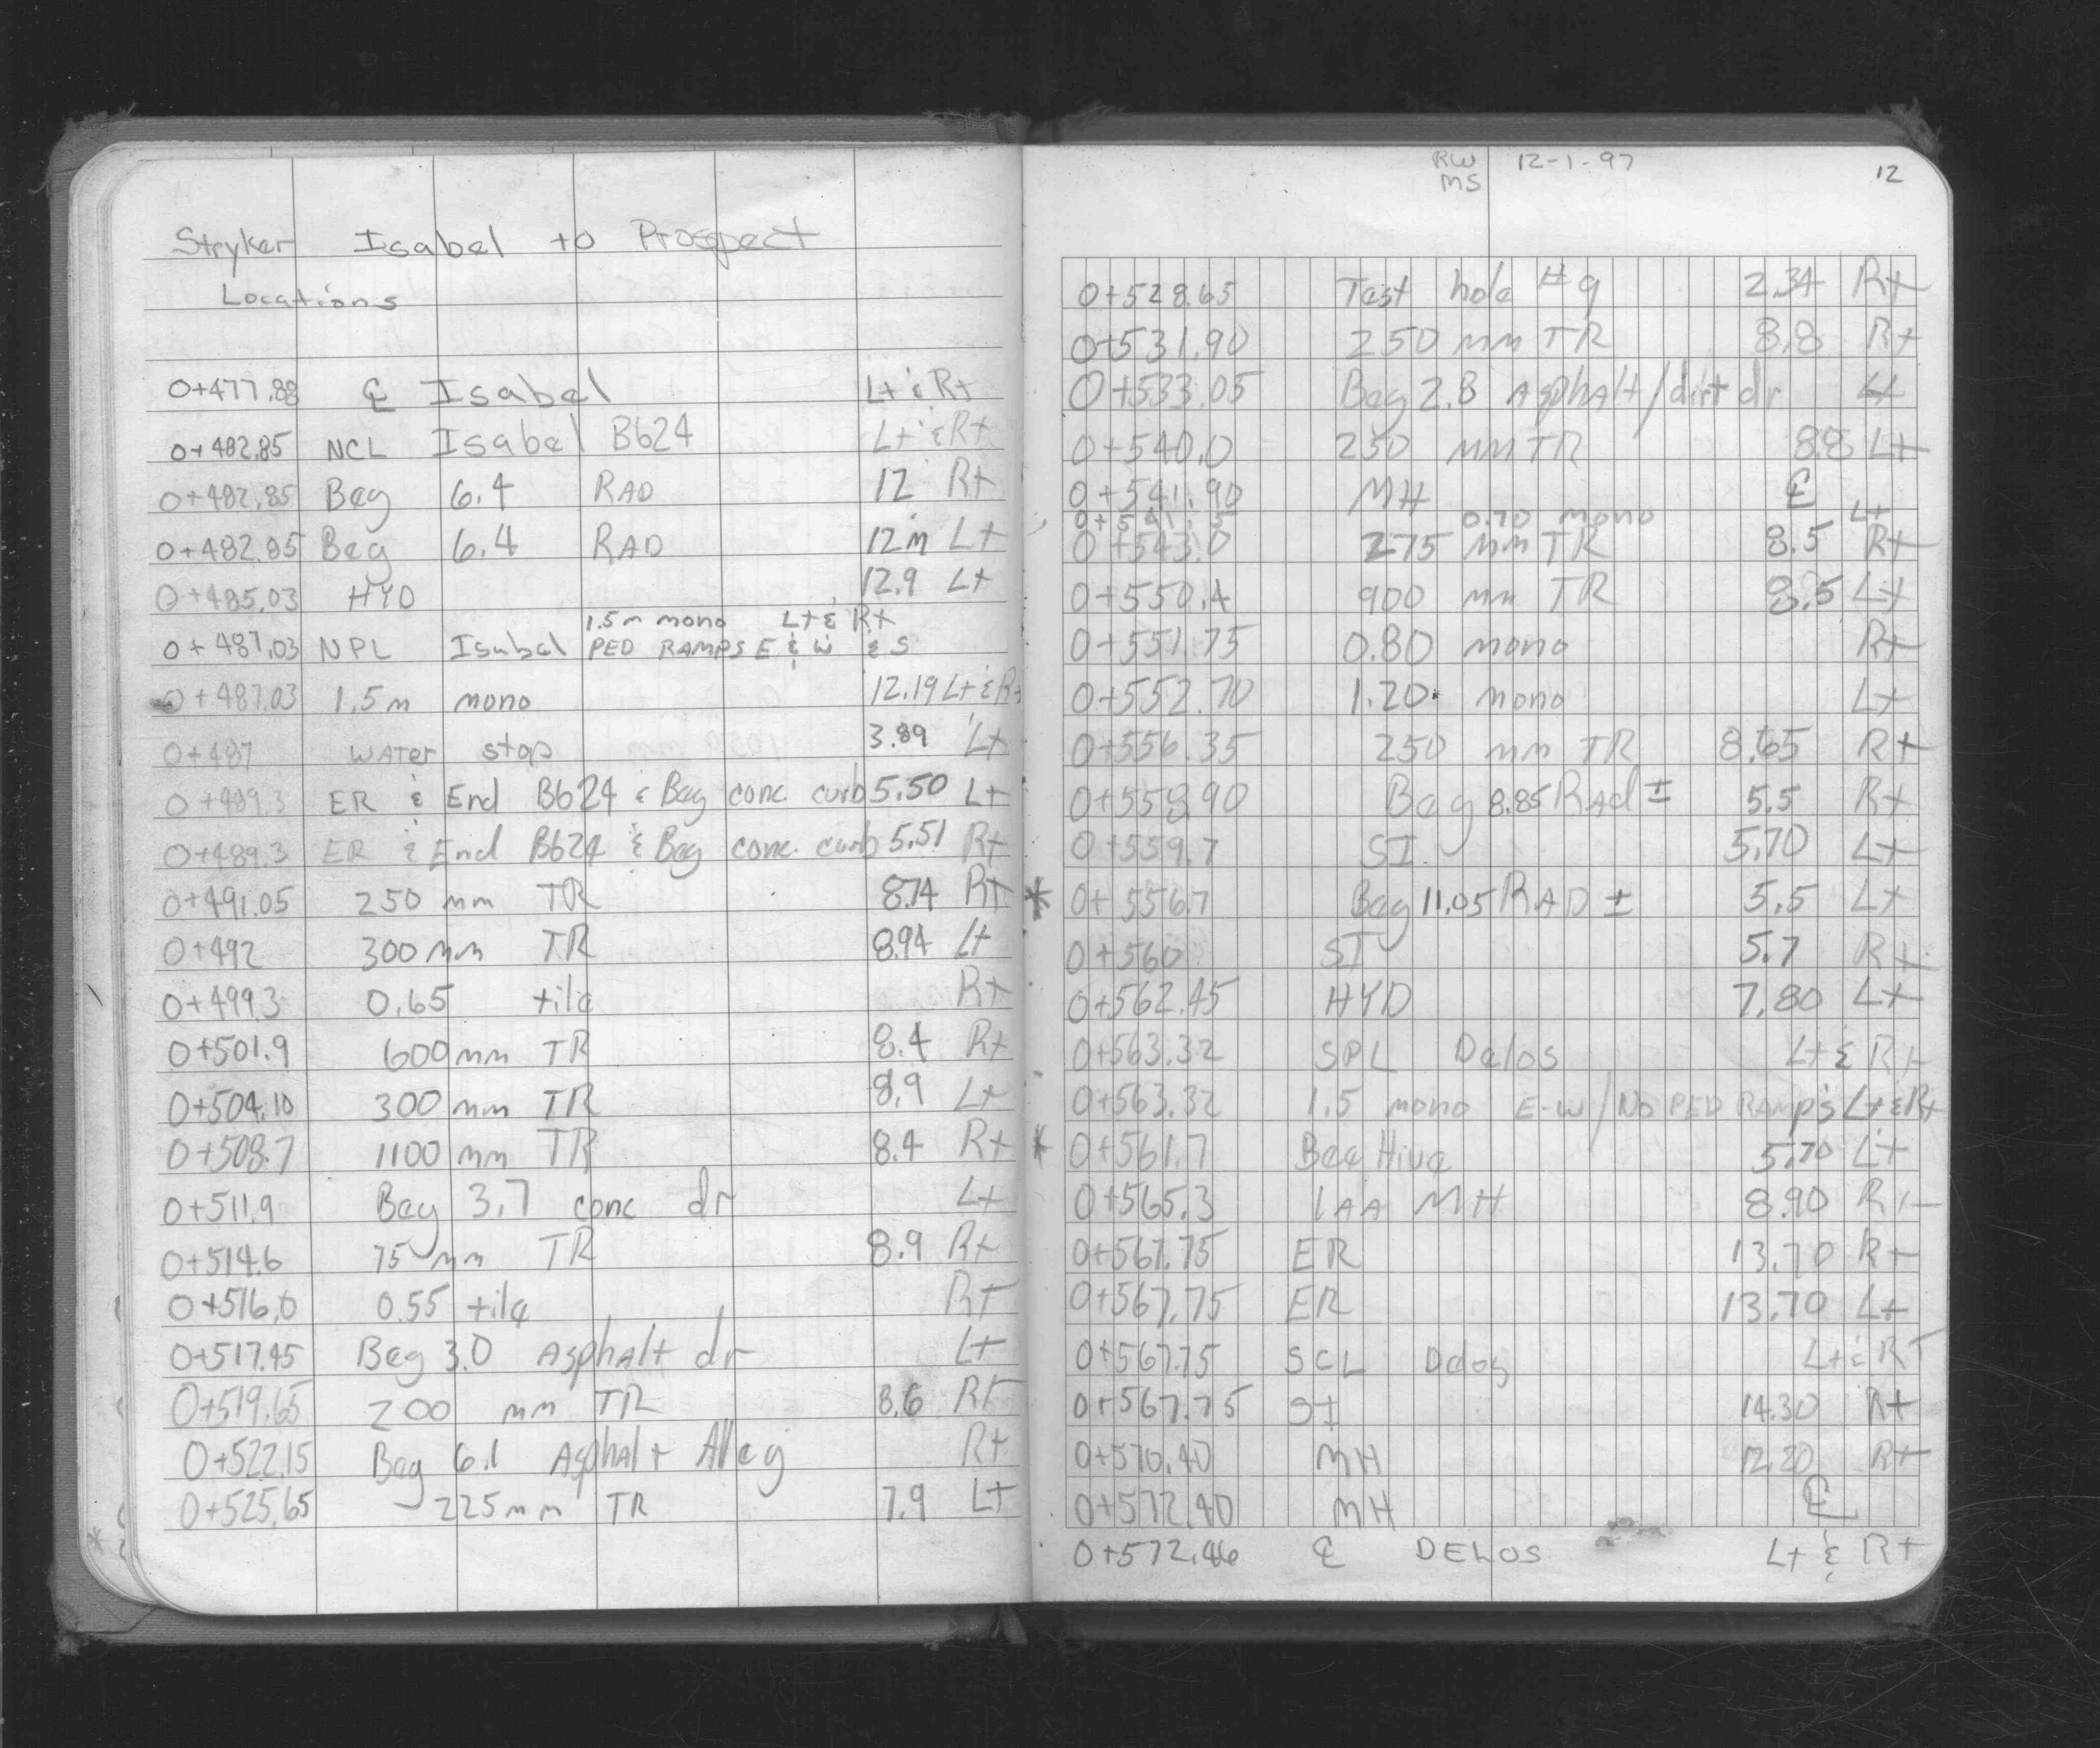 Stryker Isabel to Prospect
Locations
0+477.88 ℄ Isabel Lt & Rt
0+482.85 NCL Isabel B624 Lt & Rt
0+482.85 Beg 6.4 RAD 12 Rt
0+482.85 Beg 6.4 RAD 12m Lt
0+485.03 HYD 12.9 Lt
1.5m mono Lt & Rt
0+487.03 NPL Isabel PED RAMPS E & W & S
0+487.03 1.5m mono 12.19 Lt & Rt
0+487 WATER stop 3.89 Lt
0+489.3 ER & End B624 & Beg conc. curb 5.50 Lt
0+489.3 ER & End B624 & Beg conc. curb 5.51 Rt
0+491.05 250 mm TR 8.74 Rt
0+492 300 mm TR 8.94 Lt
0+499.3 0.65 tile Rt
0+501.9 600 mm TR 8.4 Rt
0+504.10 300 mm TR 8.9 Lt
0+508.7 1100 mm TR 8.4 Rt
0+511.9 Beg 3.7 conc dr Lt
0+514.6 75 mm TR 8.9 Rt
0+516.0 0.55 tile Rt
0+517.45 Beg 3.0 Asphalt dr Lt
0+519.65 200 mm TR 8.6 Rt
0+522.15 Beg 6.1 Asphalt Alley Rt
0+525.65 225 mm TR 7.9 Lt
RW 12-1-97 12
MS
0+528.65 Test hole #9 2.34 Rt
0+531.90 250 mm TR 8.8 Rt
0+533.05 Beg 2.8 Asphalt/dirt dr Lt
0+540.0 250 mm TR 8.8 Lt
0+541.90 MH ℄
0+541.5 0.70 mono Lt
0+543.0 275 mm TR 8.5 Rt
0+550.4 900 mm TR 8.5 Lt
0+551.75 0.80 mono Rt
0+552.70 1.20 mono Lt
0+556.35 250 mm TR 8.65 Rt
0+558.90 Beg 8.85 RAd ± 5.5 Rt
0+559.7 SI 5.70 Lt
* 0+556.7 Beg 11.05 RAD ± 5.5 Lt
0+560 SI 5.7 Rt
0+562.45 HYD 7.80 Lt
0+563.32 SPL Delos Lt & Rt
0+563.32 1.5 mono E-W/NO PED RAMPS Lt & Rt
* 0+561.7 Bee Hive 5.70 Lt
0+565.3 1AA MH 8.90 Rt
0+567.75 ER 13.70 Rt
0+567.75 ER 13.70 Lt
0+567.75 SCL Delos Lt & Rt
0+567.75 SI 14.30 Rt
0+570.40 MH 12.20 Rt
0+572.40 MH ℄
0+572.46 ℄ DELOS Lt & Rt